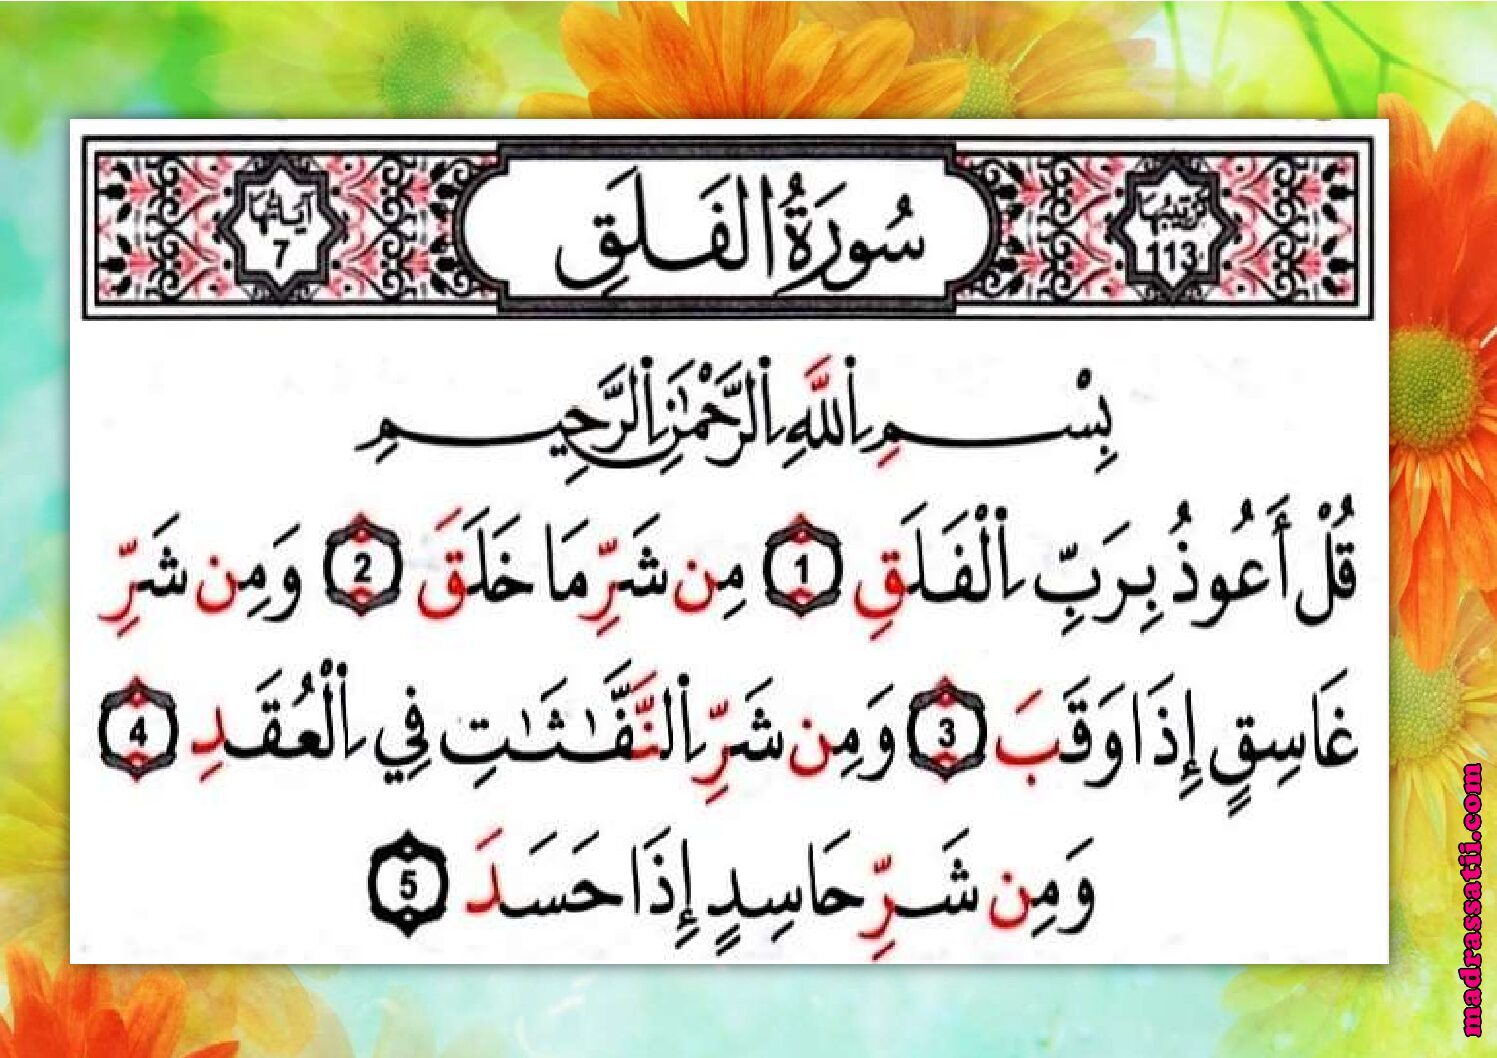 ترتيبها
113
سُورَةُ الفَلَقِ
آياتها
7
بِسْمِ اِ۬للَّهِ اِ۬لرَّحْمَٰنِ اِ۬لرَّحِيمِ
قُلْ أَعُوذُ بِرَبِّ اِ۬لْفَلَقِ 1 مِن شَرِّ مَا خَلَقَ 2 وَمِن شَرِّ
غَاسِقٍ إِذَا وَقَبَ 3 وَمِن شَرِّ اِ۬لنَّفَّٰثَٰتِ فِي اِ۬لْعُقَدِ 4
وَمِن شَرِّ حَاسِدٍ إِذَا حَسَدَ 5
madrassatii.com